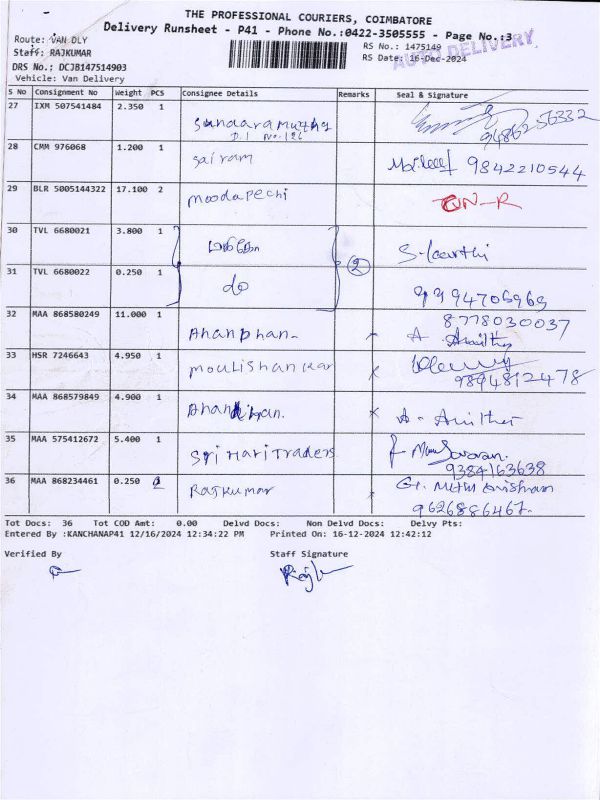 THE PROFESSIONAL COURIERS, COIMBATORE
Delivery Runsheet - P41 - Phone No.:0422-3505555 - Page No.:3
Route: VAN DLY
RS No.: 1475149
Staff: RAJKUMAR
RS Date: 16-Dec-2024
AUTO DELIVERY
DRS No.: DCJB147514903
Vehicle: Van Delivery
S No Consignment No Weight PCS Consignee Details Remarks Seal & Signature
27 IXM 507541484 2.350 1
94862 56332
28 CMM 976068 1.200 1 sai ram 9842210544
29 BLR 5005144322 17.100 2 moodapechi
30 TVL 6680021 3.800 1 S. Kaarthi
2
31 TVL 6680022 0.250 1 do
32 MAA 868580249 11.000 1 8778030037
33 HSR 7246643 4.950 1 moulishankar 9894812478
34 MAA 868579849 4.900 1
35 MAA 575412672 5.400 1 Sri Hari Traders 9384163638
36 MAA 868234461 0.250 Rajkumar
9626886467.
Tot Docs: 36 Tot COD Amt: 0.00 Delvd Docs: Non Delvd Docs: Delvy Pts:
Entered By :KANCHANAP41 12/16/2024 12:34:22 PM Printed On: 16-12-2024 12:42:12
Verified By Staff Signature